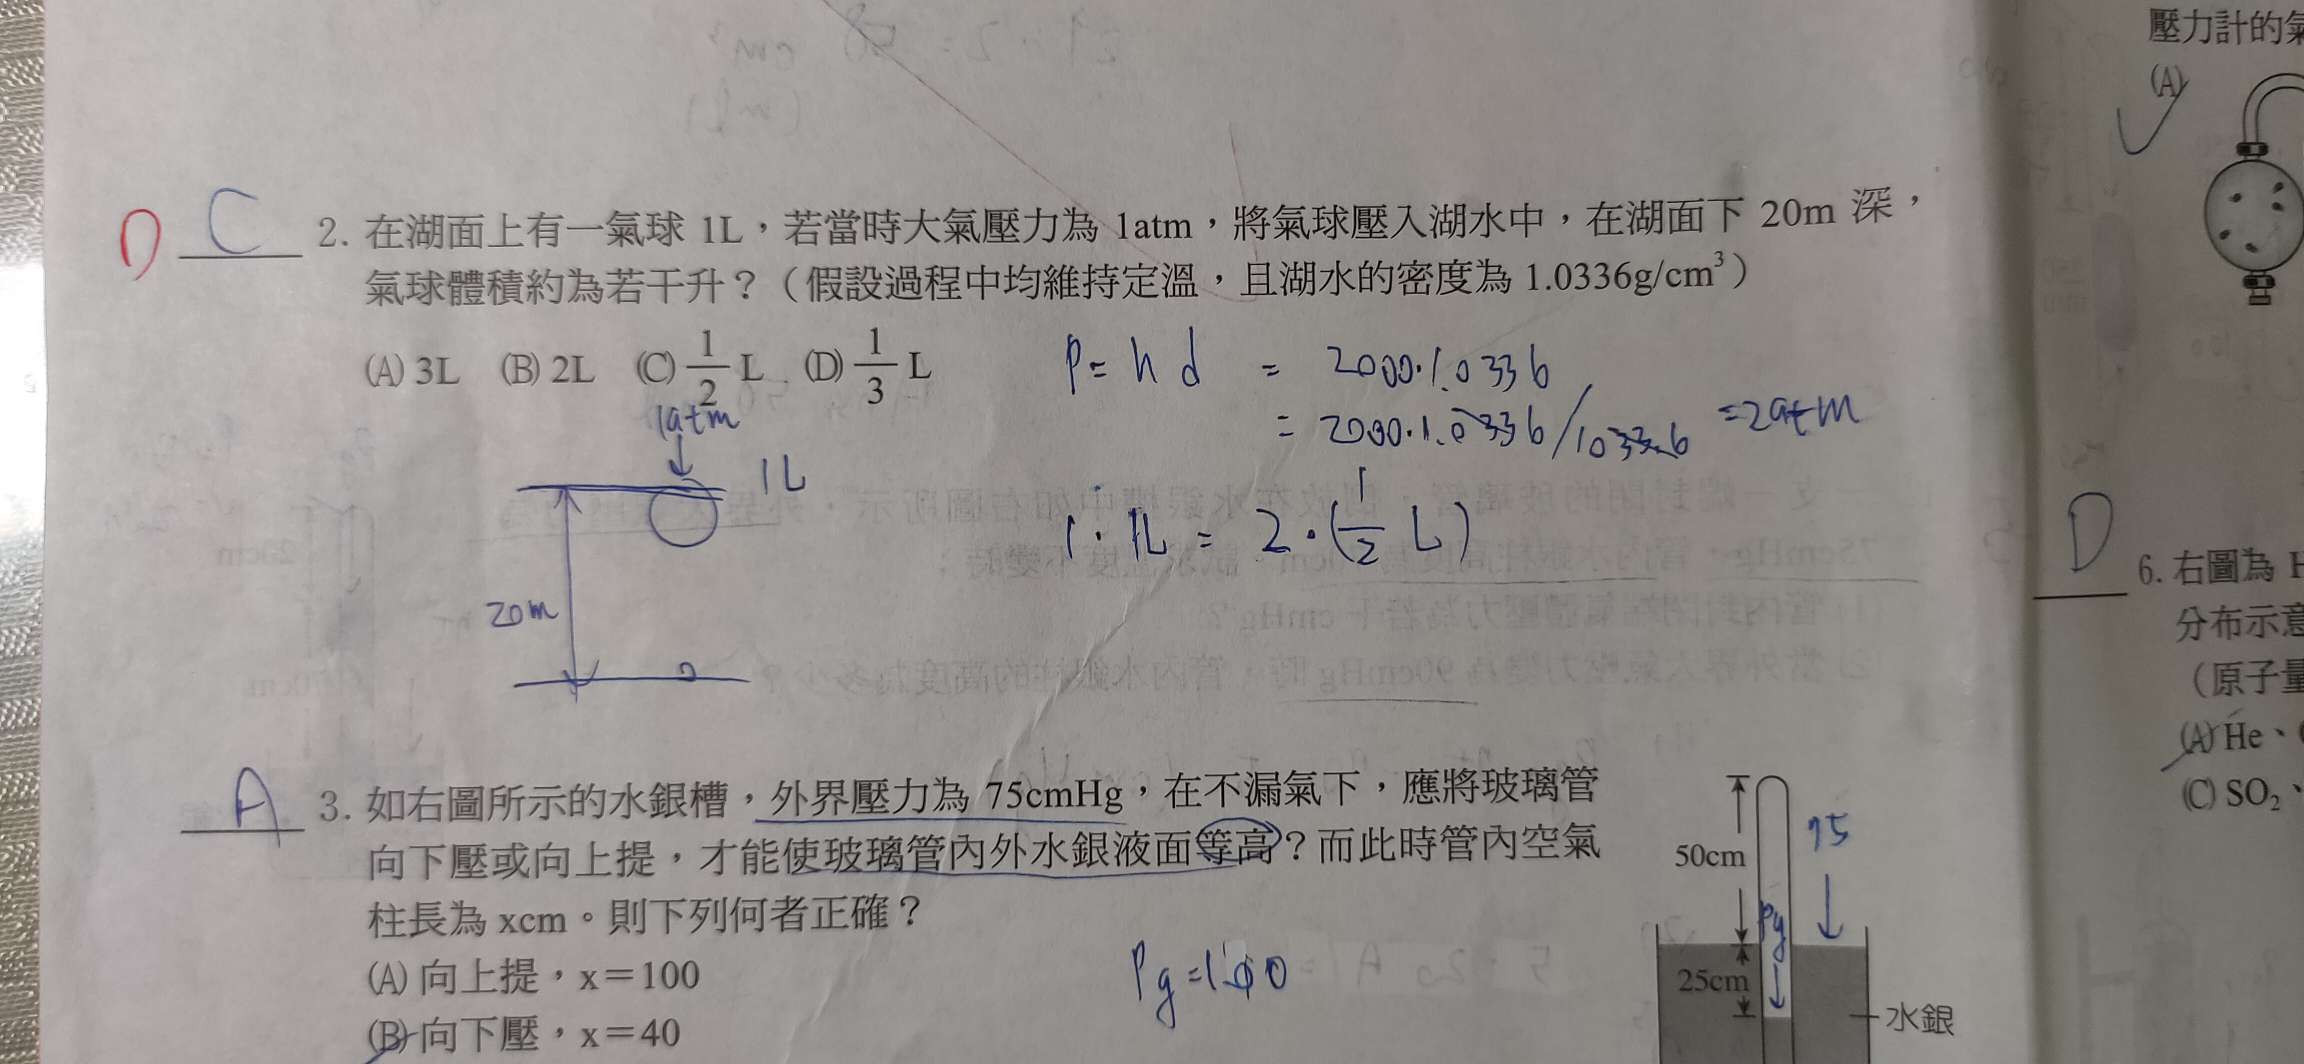 壓力計的氣
(A)
D C 2. 在湖面上有一氣球 1L，若當時大氣壓力為 1atm，將氣球壓入湖水中，在湖面下 20m 深，
氣球體積約為若干升？（假設過程中均維持定溫，且湖水的密度為 1.0336g/cm³）
(A) 3L (B) 2L (C) 1/2 L (D) 1/3 L
P = h d = 2000·1.0336
= 2000·1.0336/1033.6 = 2atm
1atm
1L
1·1L = 2·(1/2 L)
20m
A 3. 如右圖所示的水銀槽，外界壓力為 75cmHg，在不漏氣下，應將玻璃管
向下壓或向上提，才能使玻璃管內外水銀液面等高？而此時管內空氣
柱長為 xcm。則下列何者正確？
(A) 向上提，x＝100
(B) 向下壓，x＝40
Pg=100
50cm
75
Pg
25cm
水銀
D
6. 右圖為 H
分布示意
（原子量
(A) He、
(C) SO₂、